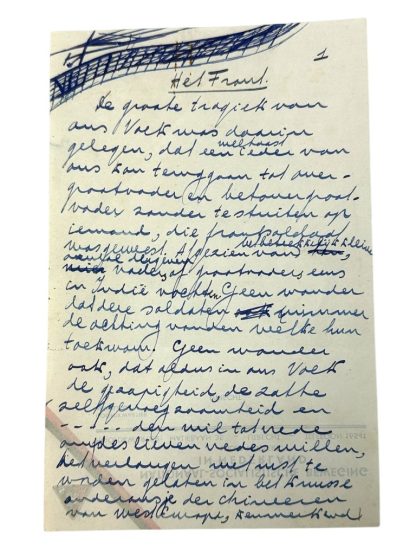 1
Het Front.
De groote tragiek van
ons Volk was daarin
gelegen, dat een ieder van
welhaast
ons kan teruggaan tot over-
grootvader en betovergroot-
vader zonder te stuiten op
iemand, die frontsoldaat
was geweest. Afgezien van
betrekkelijk kleine
vaders of grootvaders eens
in Indië vochten. Geen wonder
dat deze soldaten nimmer
de achting vonden welke hun
toekwam. Geen wonder
ook, dat aldus in ons Volk
de gezapigheid, de zatte
zelfgenoegzaamheid en
----- den wil tot vrede
om des lieven vredes willen,
het verlangen met rust te
worden gelaten in het knusse
onderonsje der
van West Europa, kenmerkend